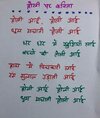 होली पर कविता
होली आई होली आई
धूम मचाती होली आई
घर घर में खुशियाँ लाई
करने को हैली आई
हाथ में पिचकारी लाई
रंग गुलाल उड़ाती आई
होली आई होली आई
धूम मचाती होली आई